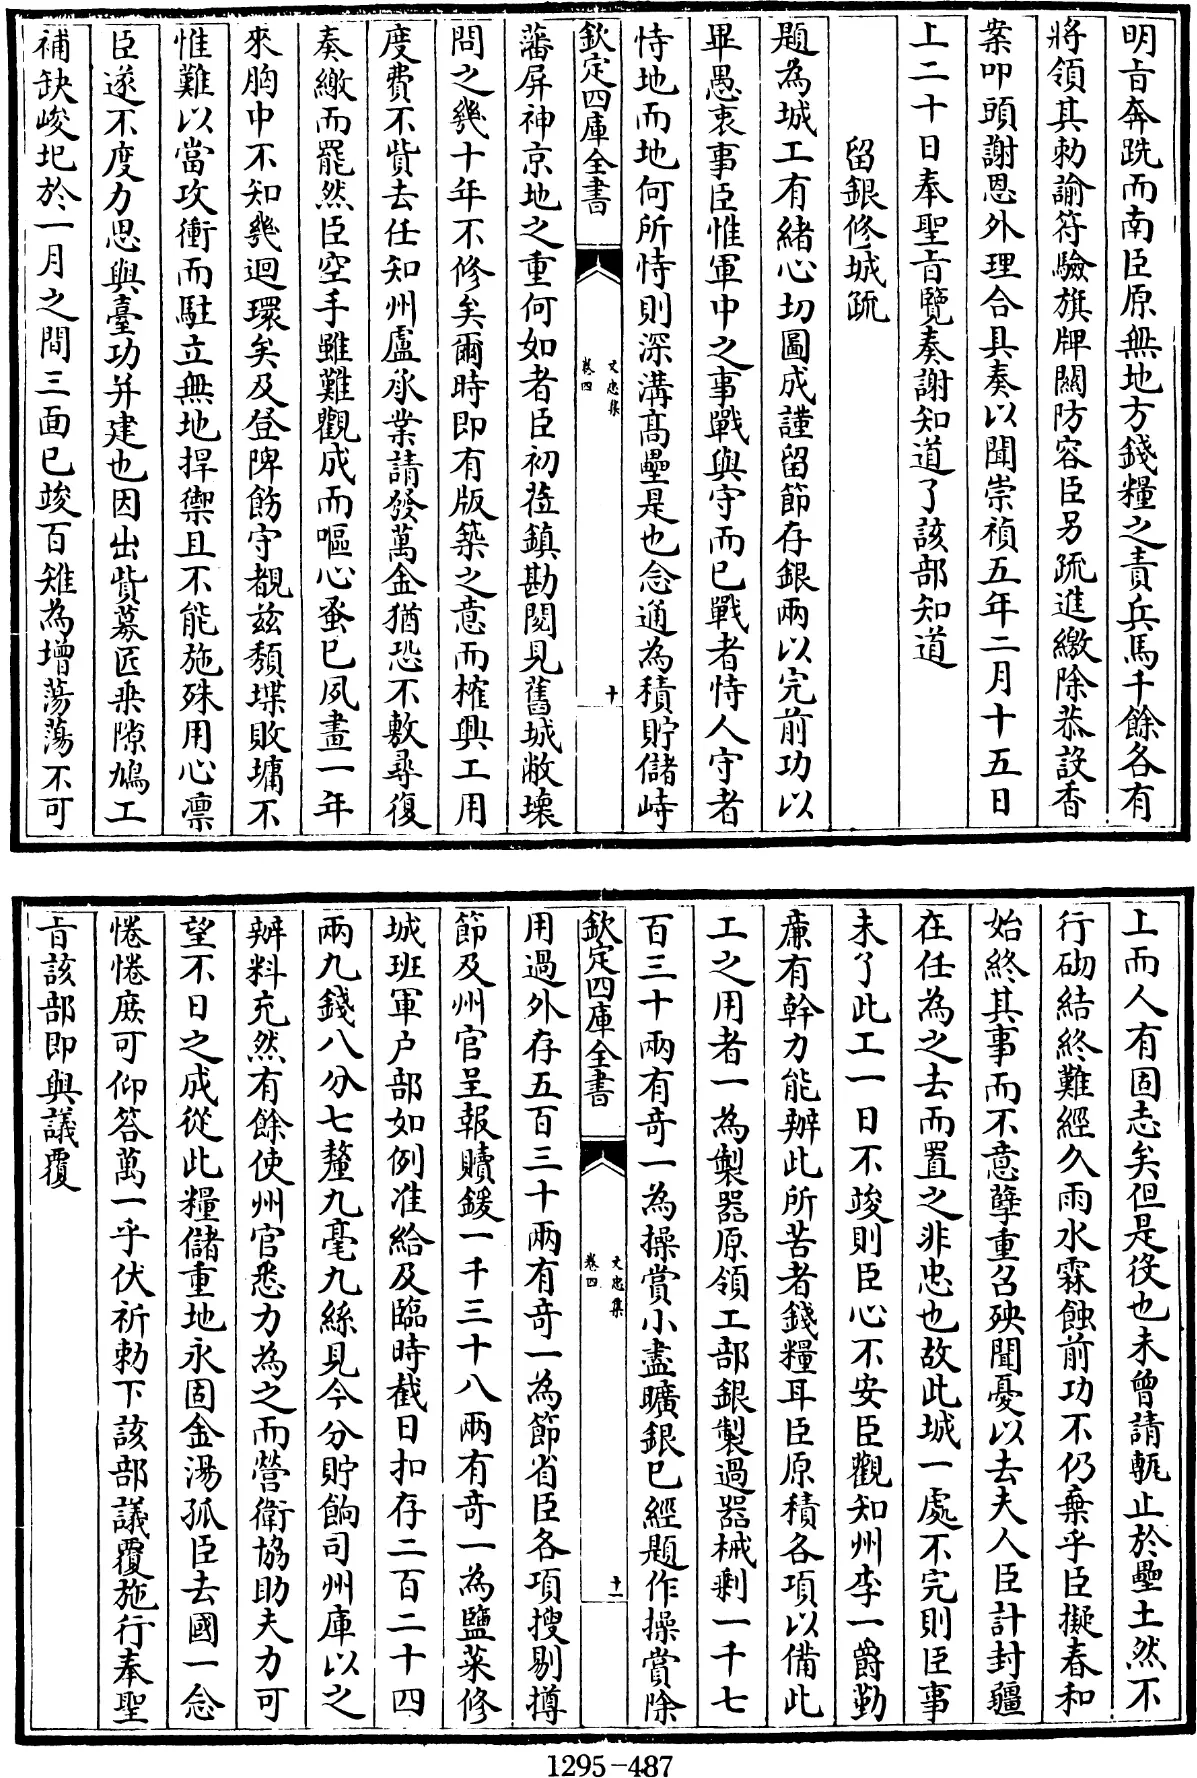 明㫖奔跣而南臣原無地方錢糧之責兵馬千餘各有
將領其勅諭符驗旗牌關防容臣另疏進繳除恭設香
案叩頭謝恩外理合具奏以聞崇禎五年二月十五日
上二十日奉聖㫖覽奏謝知道了該部知道
留銀修城疏
題為城工有緒心切圖成謹留節存銀兩以完前功以
畢愚衷事臣惟軍中之事戰與守而已戰者恃人守者
恃地而地何所恃則深溝髙壘是也念通為積貯儲峙
欽定四庫全書
文忠集
卷四
十
藩屏神京地之重何如者臣初蒞鎮勘閱見舊城敝壞
問之幾十年不修矣爾時即有版築之意而榷興工用
度費不貲去任知州盧承業請發萬金猶恐不敷尋復
奏繳而罷然臣空手雖難觀成而嘔心蚤已夙畫一年
來胸中不知幾迴環矣及登陴飭守覩兹頹堞敗墉不
惟難以當攻衝而駐立無地捍禦且不能施殊用心凛
臣遂不度力思與臺功并建也因出貲募匠乘隙鳩工
補缺峻圯於一月之間三面已竣百雉為增蕩蕩不可
上而人有固志矣但是役也未曾請甎止於壘土然不
行砌結終難經久雨水霖蝕前功不仍棄乎臣擬春和
始終其事而不意孽重召殃聞憂以去夫人臣計封疆
在任為之去而置之非忠也故此城一處不完則臣事
未了此工一日不竣則臣心不安臣觀知州李一爵勤
亷有幹力能辦此所苦者錢糧耳臣原積各項以備此
工之用者一為製器原領工部銀製過器械剩一千七
百三十兩有奇一為操賞小盡曠銀已經題作操賞除
欽定四庫全書
文忠集
卷四
十一
用過外存五百三十兩有奇一為節省臣各項搜剔撙
節及州官呈報贖鍰一千三十八兩有奇一為鹽菜修
城班軍户部如例准給及臨時截日扣存二百二十四
兩九錢八分七釐九毫九絲見今分貯餉司州庫以之
辦料充然有餘使州官悉力為之而營衛協助夫力可
望不日之成從此糧儲重地永固金湯孤臣去國一念
惓惓庶可仰答萬一乎伏祈勅下該部議覆施行奉聖
㫖該部即與議覆
1295-487